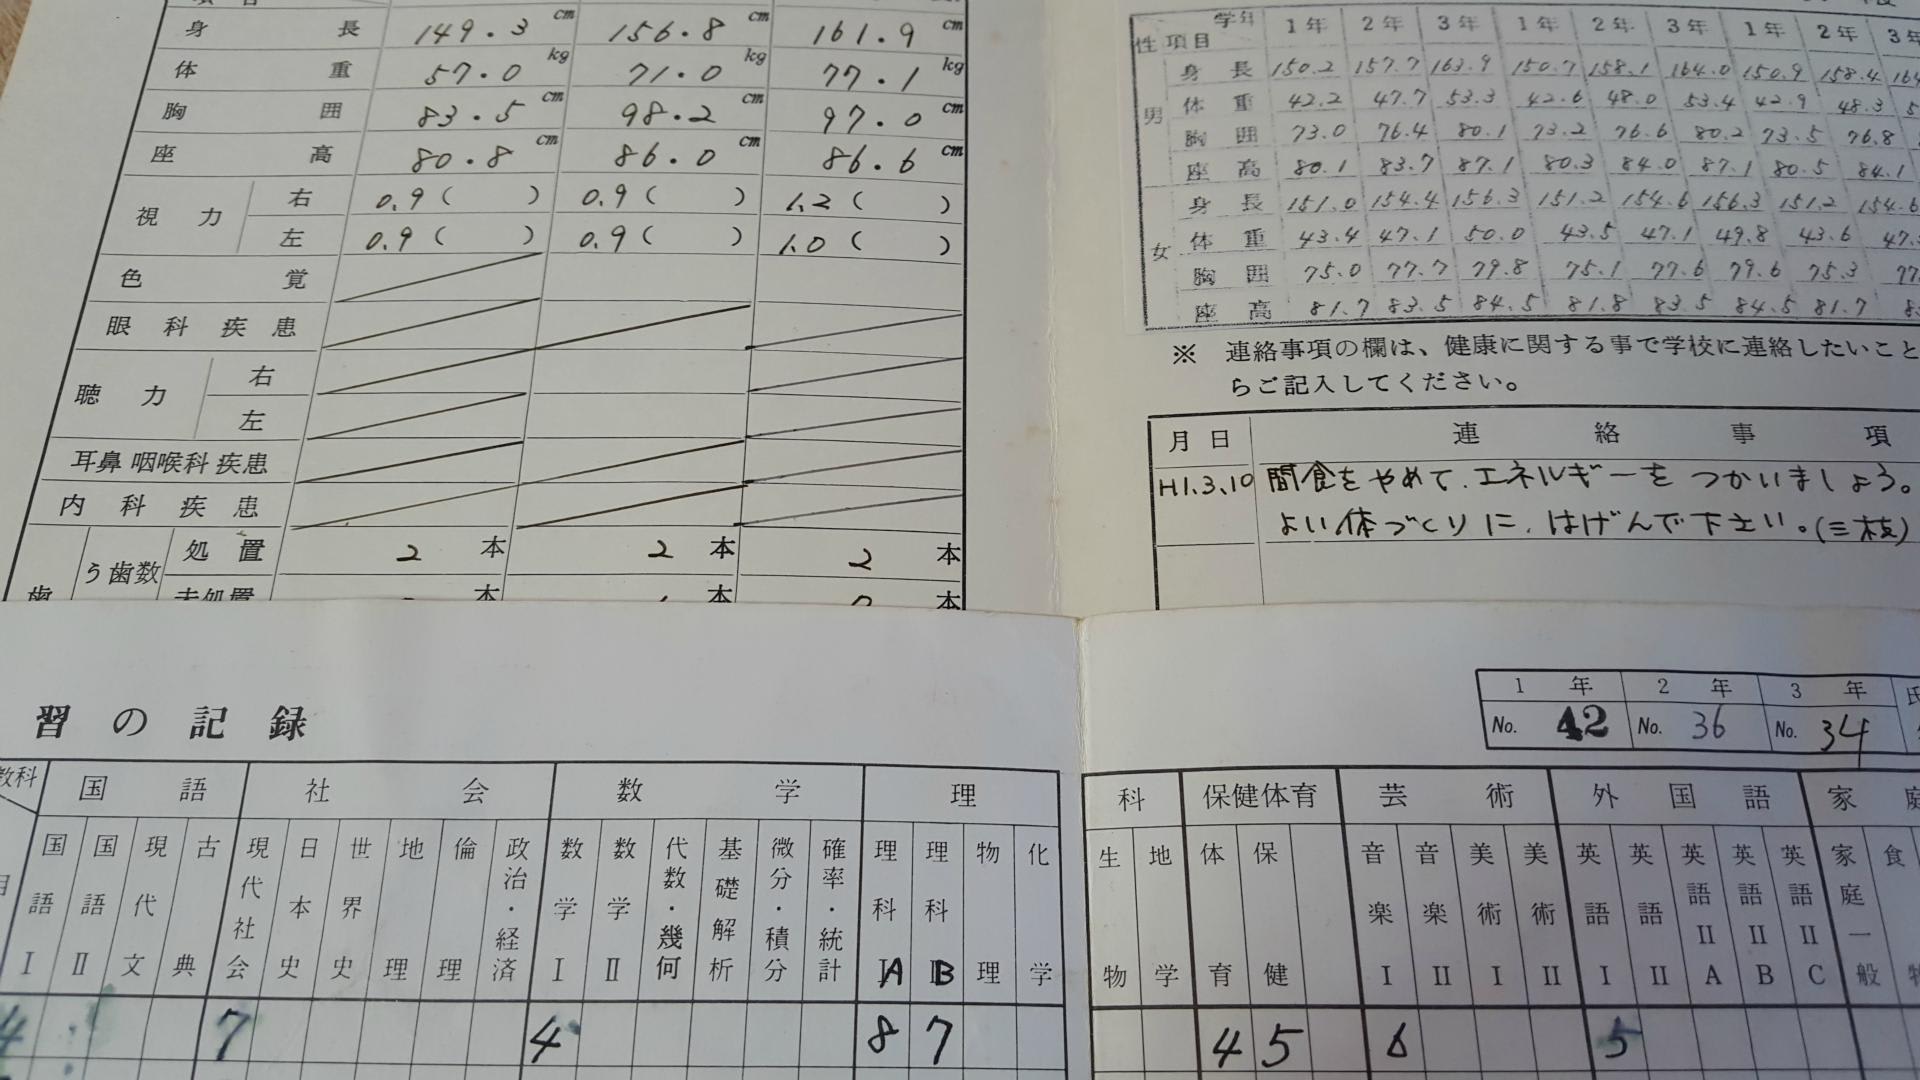 身長 149.3 cm 156.8 cm 161.9 cm
体重 57.0 kg 71.0 kg 77.1 kg
胸囲 83.5 cm 98.2 cm 97.0 cm
座高 80.8 cm 86.0 cm 86.6 cm
視力 右 0.9 ( ) 0.9 ( ) 1.2 ( )
左 0.9 ( ) 0.9 ( ) 1.0 ( )
色覚
眼科疾患
聴力 右
左
耳鼻咽喉科疾患
内科疾患
歯 う歯数 処置 2 本 2 本 2 本
未処置 本 本 本
学年 1年 2年 3年 1年 2年 3年 1年 2年 3年
性 項目
男 身長 150.2 157.7 163.9 150.7 158.1 164.0 150.9 158.4
体重 42.2 47.7 53.3 42.6 48.0 53.4 42.9 48.3
胸囲 73.0 76.4 80.1 73.2 76.6 80.2 73.5 76.8
座高 80.1 83.7 87.1 80.3 84.0 87.1 80.5 84.1
女 身長 151.0 154.4 156.3 151.2 154.6 156.3 151.2 154.6
体重 43.4 47.1 50.0 43.5 47.1 49.8 43.6
胸囲 75.0 77.7 79.8 75.1 77.6 79.6 75.3
座高 81.7 83.5 84.5 81.8 83.5 84.5 81.7
※ 連絡事項の欄は、健康に関する事で学校に連絡したいこと
らご記入してください。
月日 連絡事項
H1.3.10 間食をやめて、エネルギーをつかいましょう。
よい体づくりに、はげんで下さい。(三枝)
習の記録
1年 2年 3年
No. 42 No. 36 No. 34
教科 国語 社会 数学 理
国語I 国語II 現代文 古典 現代社会 日本史 世界史 地理 倫理 政治・経済 数学I 数学II 代数・幾何 基礎解析 微分・積分 確率・統計 理科IA 理科B 物理 化学
4 7 4 8 7
科 保健体育 芸術 外国語 家庭
生物 地学 体育 保健 音楽I 音楽II 美術I 美術II 英語I 英語II 英語IIA 英語IIB 英語IIC 家庭一般
4 5 6 5